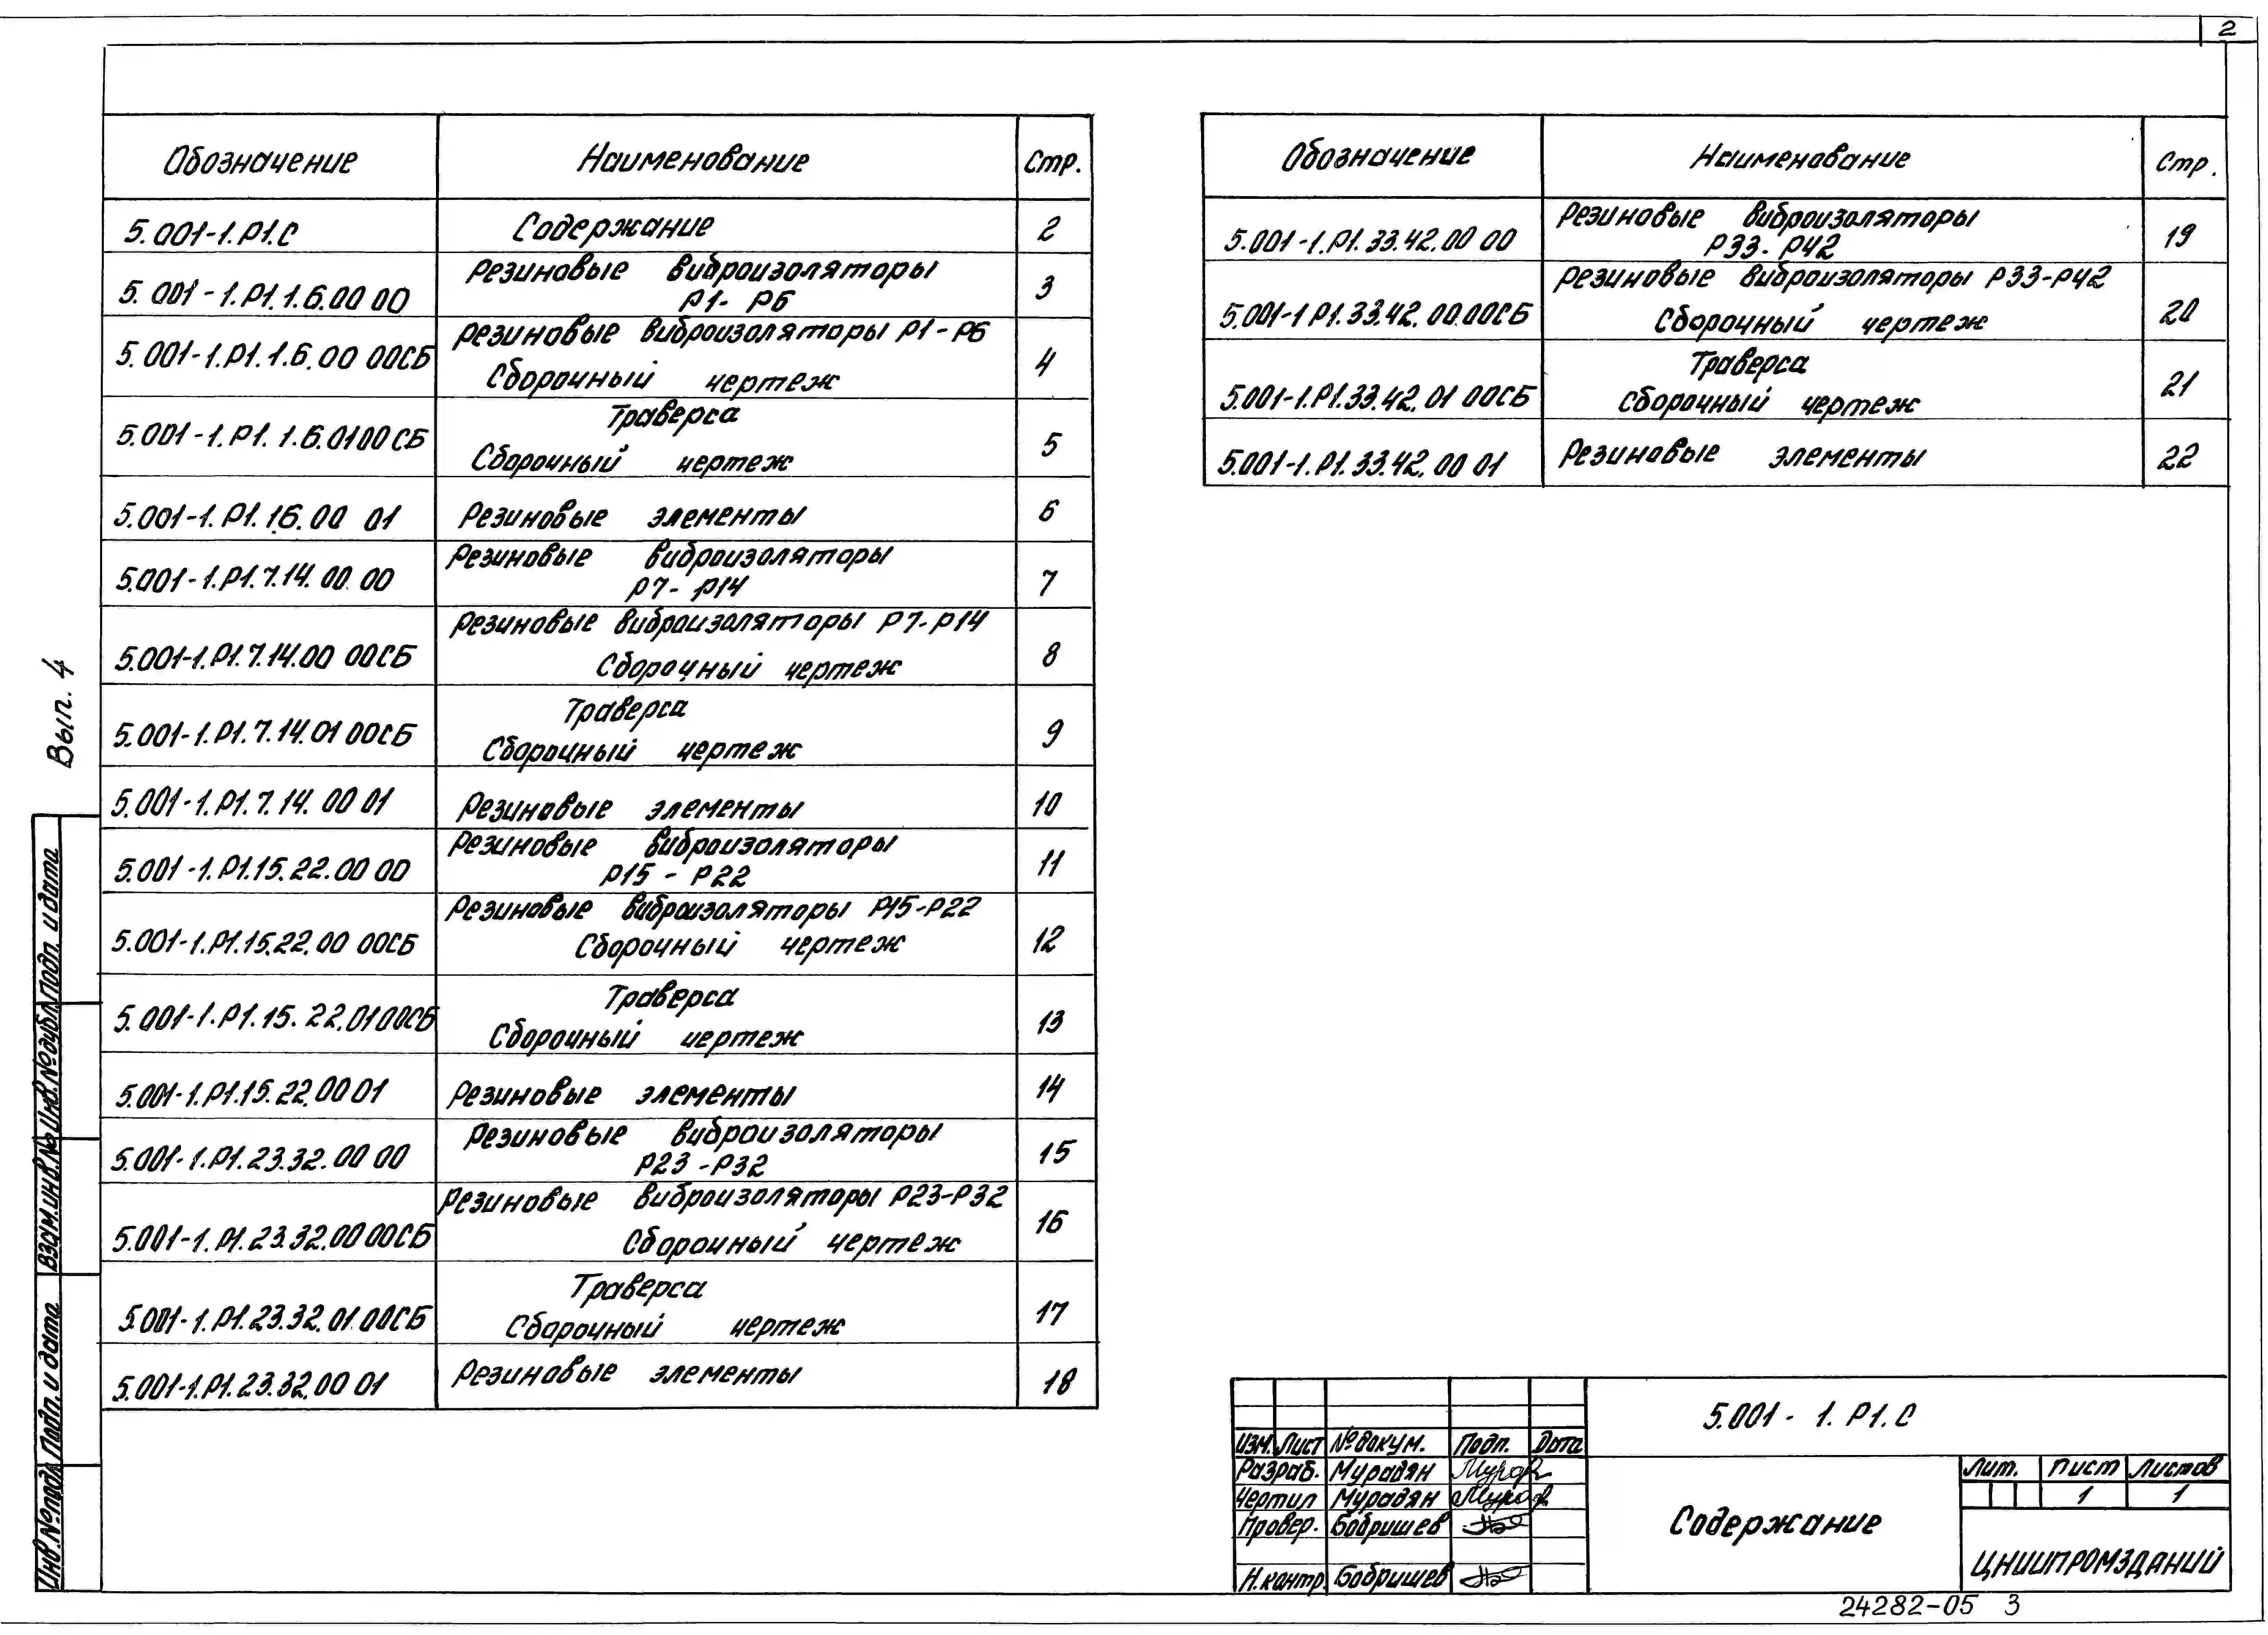 2
Обозначение Наименование Стр.
5.001-1.Р1.С Содержание 2
5.001-1.Р1.1.6.00 00 Резиновые виброизоляторы 3
Р1-Р6
5.001-1.Р1.1.6.00 00СБ Резиновые виброизоляторы Р1-Р6 4
Сборочный чертеж
5.001-1.Р1.1.6.01 00СБ Траверса 5
Сборочный чертеж
5.001-1.Р1.16.00 01 Резиновые элементы 6
5.001-1.Р1.7.14.00 00 Резиновые виброизоляторы 7
Р7-Р14
5.001-1.Р1.7.14.00 00СБ Резиновые виброизоляторы Р7-Р14 8
Сборочный чертеж
5.001-1.Р1.7.14.01 00СБ Траверса 9
Сборочный чертеж
5.001-1.Р1.7.14.00 01 Резиновые элементы 10
5.001-1.Р1.15.22.00 00 Резиновые виброизоляторы 11
Р15-Р22
5.001-1.Р1.15.22.00 00СБ Резиновые виброизоляторы Р15-Р22 12
Сборочный чертеж
5.001-1.Р1.15.22.01 00СБ Траверса 13
Сборочный чертеж
5.001-1.Р1.15.22.00 01 Резиновые элементы 14
5.001-1.Р1.23.32.00 00 Резиновые виброизоляторы 15
Р23-Р32
5.001-1.Р1.23.32.00 00СБ Резиновые виброизоляторы Р23-Р32 16
Сборочный чертеж
5.001-1.Р1.23.32.01.00СБ Траверса 17
Сборочный чертеж
5.001-1.Р1.23.32.00 01 Резиновые элементы 18
Обозначение Наименование Стр.
5.001-1.Р1.33.42.00 00 Резиновые виброизоляторы 19
Р33-Р42
5.001-1 Р1.33.42.00.00СБ Резиновые виброизоляторы Р33-Р42 20
Сборочный чертеж
5.001-1.Р1.33.42.01 00СБ Траверса 21
Сборочный чертеж
5.001-1.Р1.33.42.00 01 Резиновые элементы 22
Вып. 4
Инв.№подл. Подп. и дата Взам.инв.№ Инв.№дубл. Подп. и дата
5.001-1.Р1.С
Изм. Лист №докум. Подп. Дата
Разраб. Мурадян
Чертил Мурадян
Провер. Бобришев
Н.контр Бобришев
Содержание
Лит. Лист Листов
1 1
ЦНИИПРОМЗДАНИЙ
24282-05 3